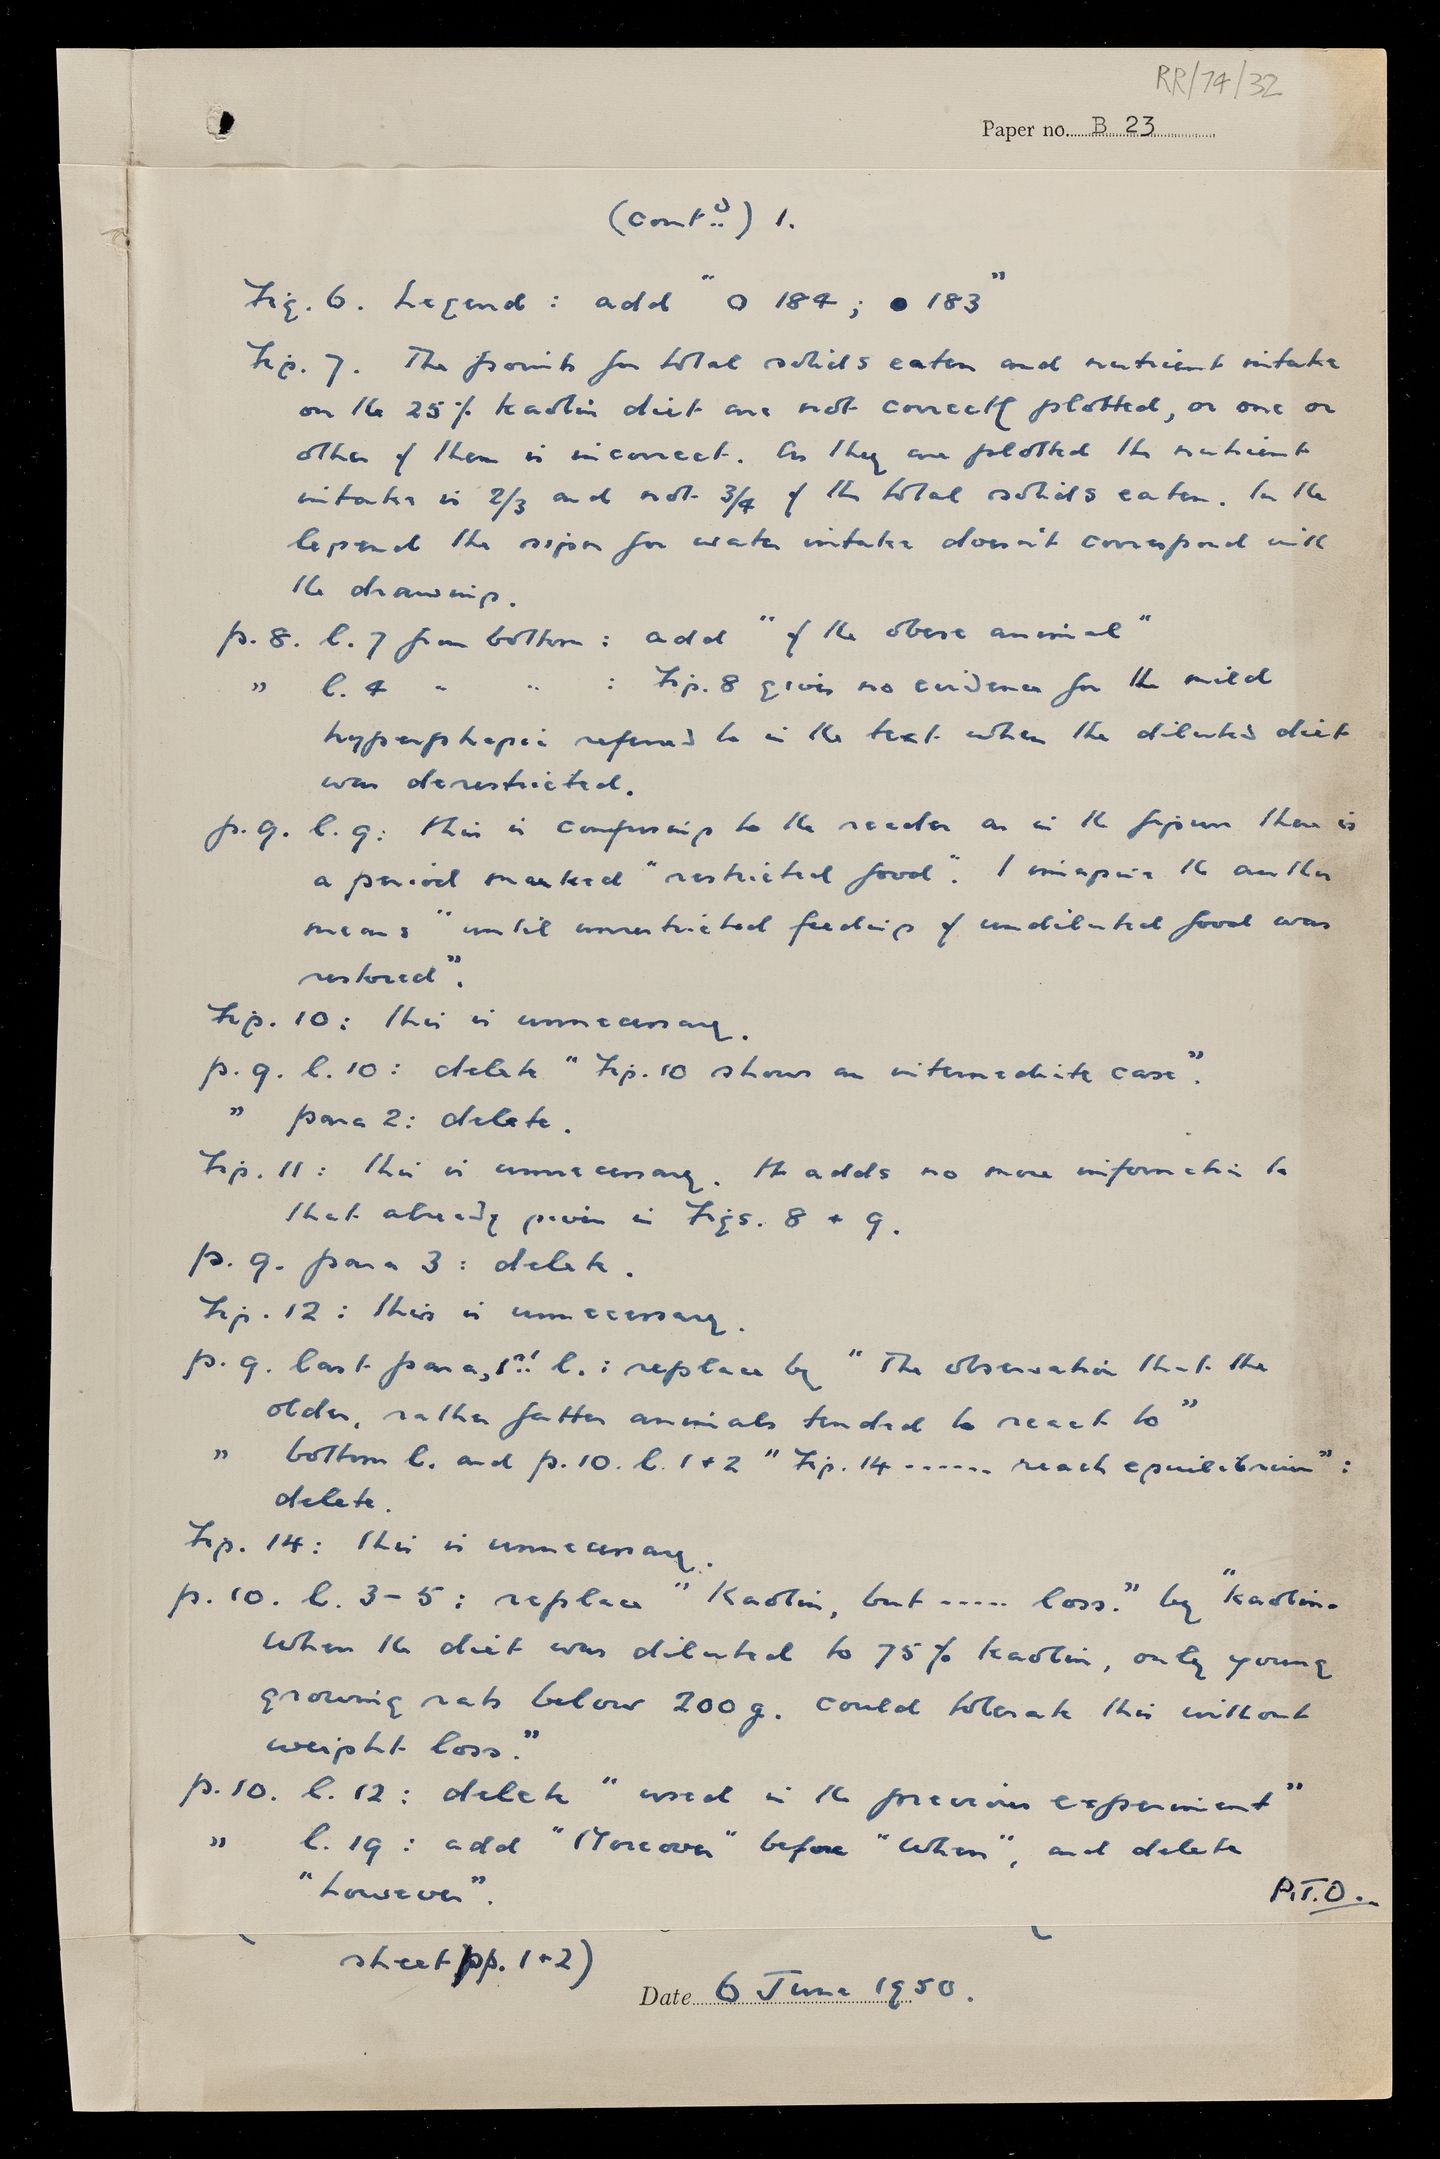 RR/74/32
Paper no. B 23
(contd) 1.
Fig. 6. Legend : add " o 184 ; ● 183 "
Fig. 7. The points for total solids eaten and nutrient intake
on the 25% kaolin diet are not correctly plotted, or one or
other of them is incorrect. As they are plotted the nutrient
intake is 2/3 and not 3/4 of the total solids eaten. In the
legend the sign for water intake doesn't correspond with
the drawing.
p. 8. l. 7 from bottom : add " of the obese animal "
" l. 4 " " : Fig. 8 gives no evidence for the mild
hyperphagia referred to in the text when the diluted diet
was derestricted.
p. 9. l. 9 : this is confusing to the reader as in the figure there is
a period marked "restricted food". I imagine the author
means "until unrestricted feeding of undiluted food was
restored".
Fig. 10 : this is unnecessary.
p. 9. l. 10 : delete "Fig. 10 shows an intermediate case".
" para 2 : delete.
Fig. 11 : this is unnecessary. It adds no more information to
that already given in Figs. 8 + 9.
p. 9. para 3 : delete.
Fig. 12 : this is unnecessary.
p. 9. last para, 1st l. : replace by " The observation that the
older, rather fatter animals tended to react to "
" bottom l. and p. 10. l. 1 + 2 " Fig. 14 ...... reach equilibrium " :
delete.
Fig. 14 : this is unnecessary.
p. 10. l. 3-5 : replace " Kaolin, but ..... loss." by "kaolin.
When the diet was diluted to 75% kaolin, only young
growing rats below 200 g. could tolerate this without
weight loss."
p. 10. l. 12 : delete " used in the previous experiment "
" l. 19 : add "Moreover" before "When", and delete
"however".
P.T.O.
sheet (pp. 1 + 2)
Date 6 June 1950.